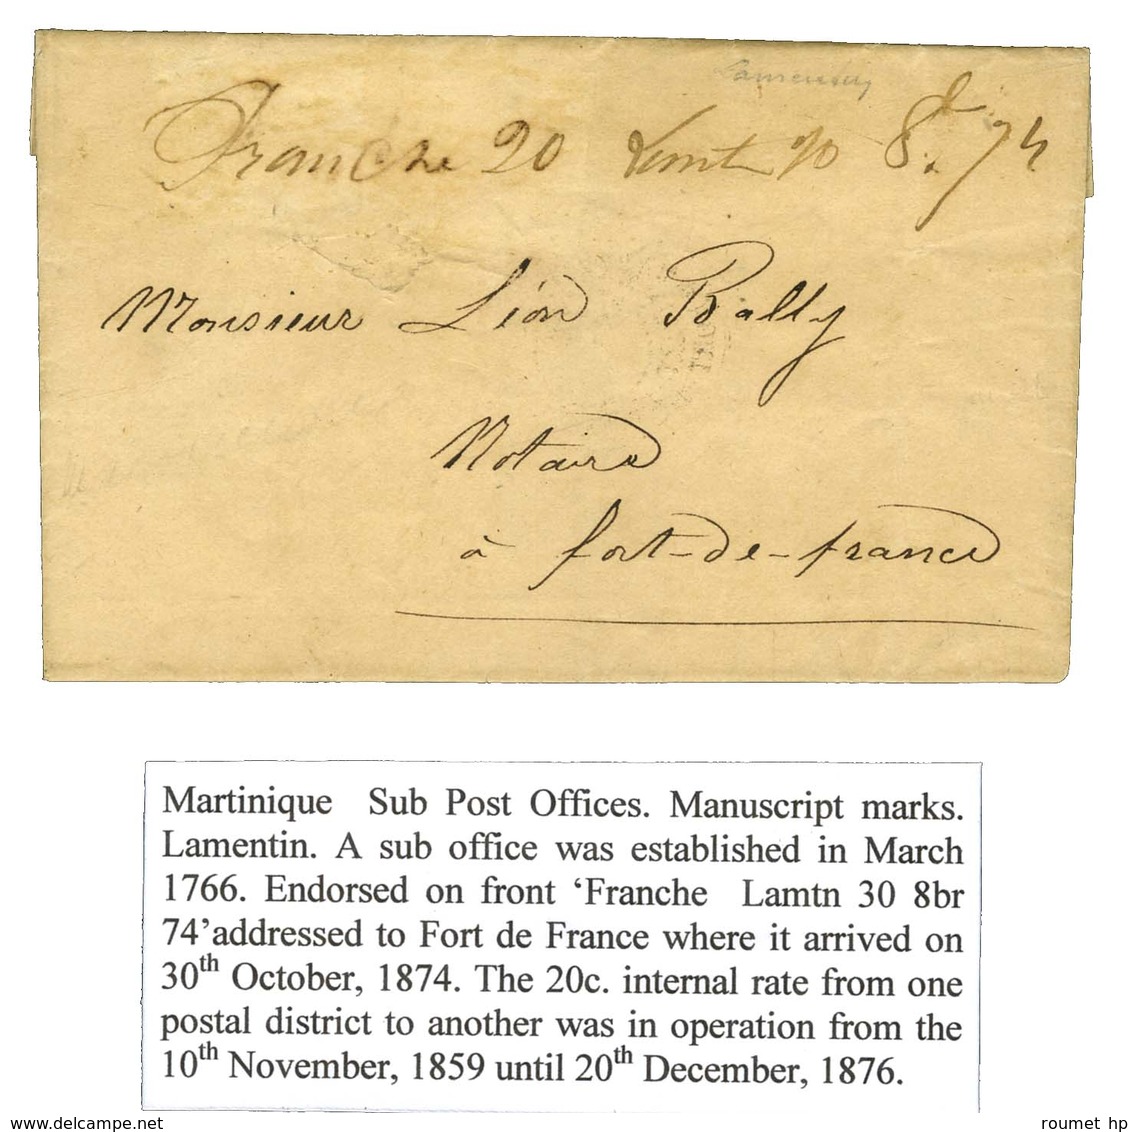 Franche 20 Lamt 30 8bre 74
Monsieur Léon Bally
Notaire
à fort-de-france
Martinique Sub Post Offices. Manuscript marks.
Lamentin. A sub office was established in March
1766. Endorsed on front ‘Franche Lamtn 30 8br
74’addressed to Fort de France where it arrived on
30th October, 1874. The 20c. internal rate from one
postal district to another was in operation from the
10th November, 1859 until 20th December, 1876.
www.delcampe.net
roumet hp